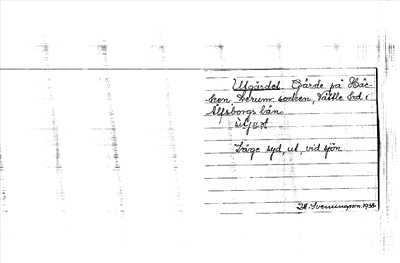 Utgärdet. Gärde på Häc-
ken, Lerum socken, Vättle hd i
Älfsborgs län.
Läge syd, ut, vid sjön
Svenungsson. 1938